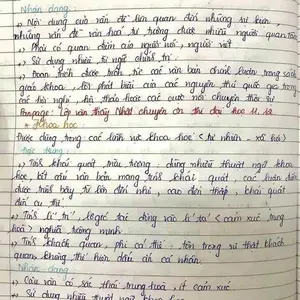 Nhận dạng:
+ Nội dung của vấn đề liên quan đến những sự kiện,
những vấn đề văn hoá, tư tưởng được nhiều người quan tâm
+ Phải có quan điểm của người nói, người viết
+ Sử dụng nhiều từ ngữ chính trị
+ Đoạn trích được trích từ các văn bản chính luận trong sách
giáo khoa, lời phát biểu của các nguyên thủ quốc gia trong
các hội nghị, hội thảo hoặc các cuộc nói chuyện thời sự
Fanpage: Lớp văn thầy Nhật chuyên ôn thi đại học 11, 12
Khoa học
Được dùng trong các lĩnh vực khoa học (tự nhiên, xã hội)
Đặc trưng:
+ Tính khái quát, trừu tượng: dùng nhiều thuật ngữ khoa
học, kết cấu văn bản mang tính khái quát, các luận điểm
được trình bày từ lớn đến nhỏ, cao đến thấp, khái quát
đến cụ thể
+ Tính lí trí, logic:
nghĩa tường minh
+ Tính khách quan, phi cá thể: tôn trọng sự thật khách
quan, không thể hiện dấu ấn cá nhân
Nhận dạng
+ Câu văn có sắc thái trung hoà, ít cảm xúc
+ Sử dụng nhiều thuật ngữ khoa học